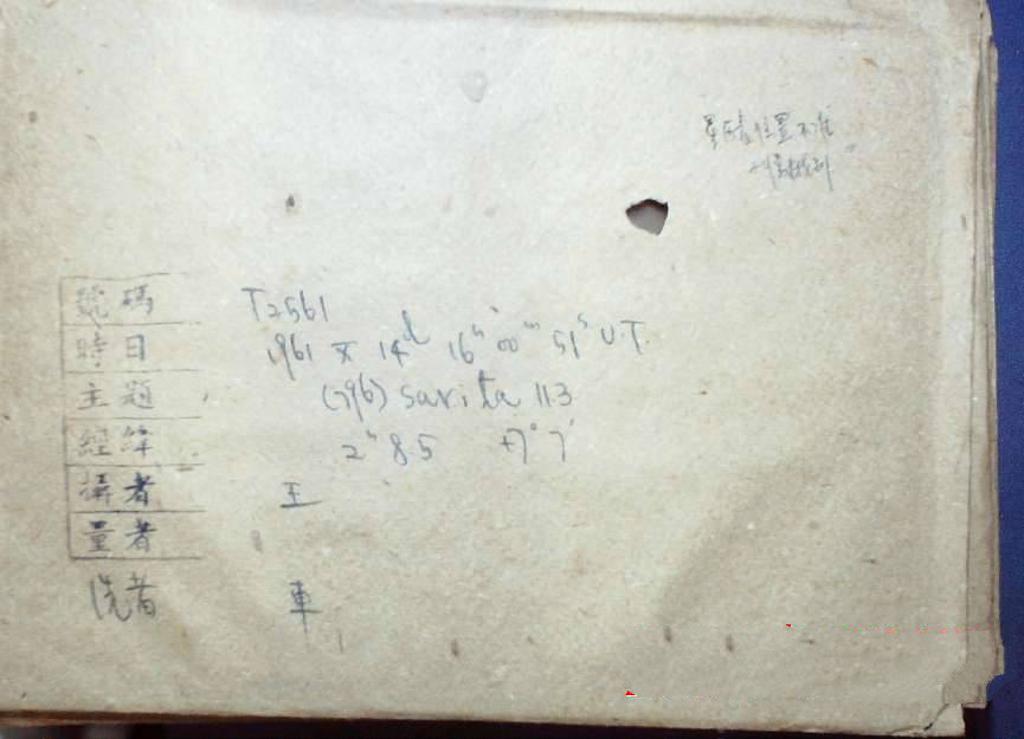 位置不准
號碼 T2561
時日 1961 X 14d 16h 00m 51s U.T.
主題 (796) Sarita 113
經緯 2h 85 +7° 7'
攝者 王
量者
洗者 車